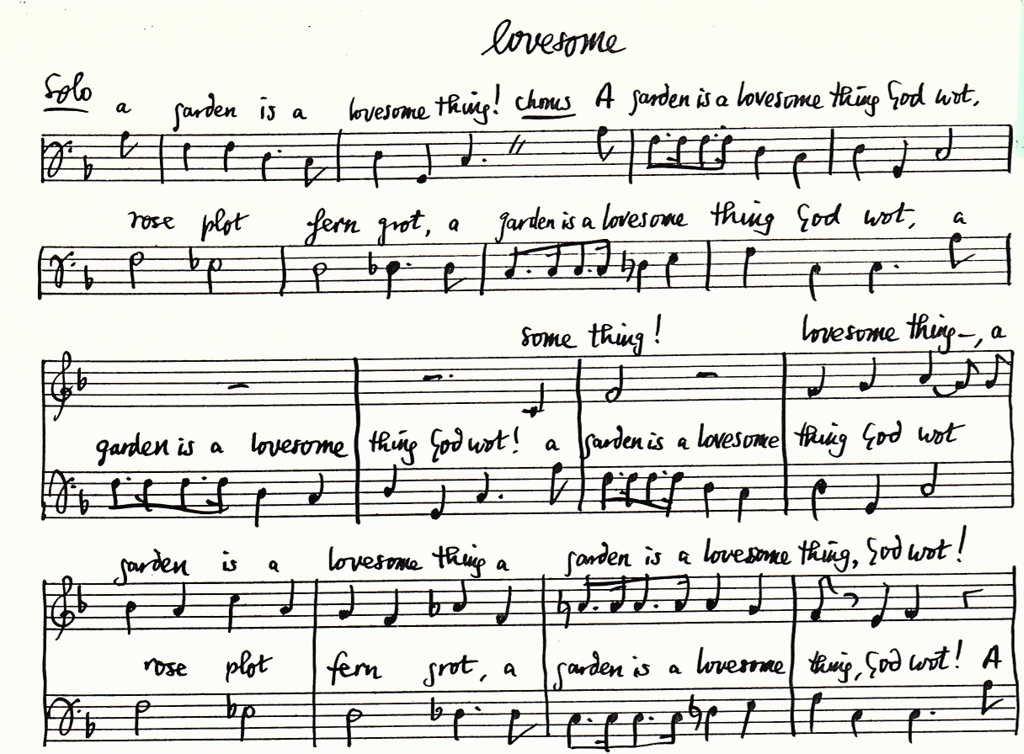 lovesome
Solo a garden is a lovesome thing! chorus A garden is a lovesome thing God wot,
rose plot fern grot, a garden is a lovesome thing God wot, a
some thing! lovesome thing—, a
garden is a lovesome thing God wot! a garden is a lovesome thing God wot
garden is a lovesome thing a garden is a lovesome thing, God wot!
rose plot fern grot, a garden is a lovesome thing, God wot! A